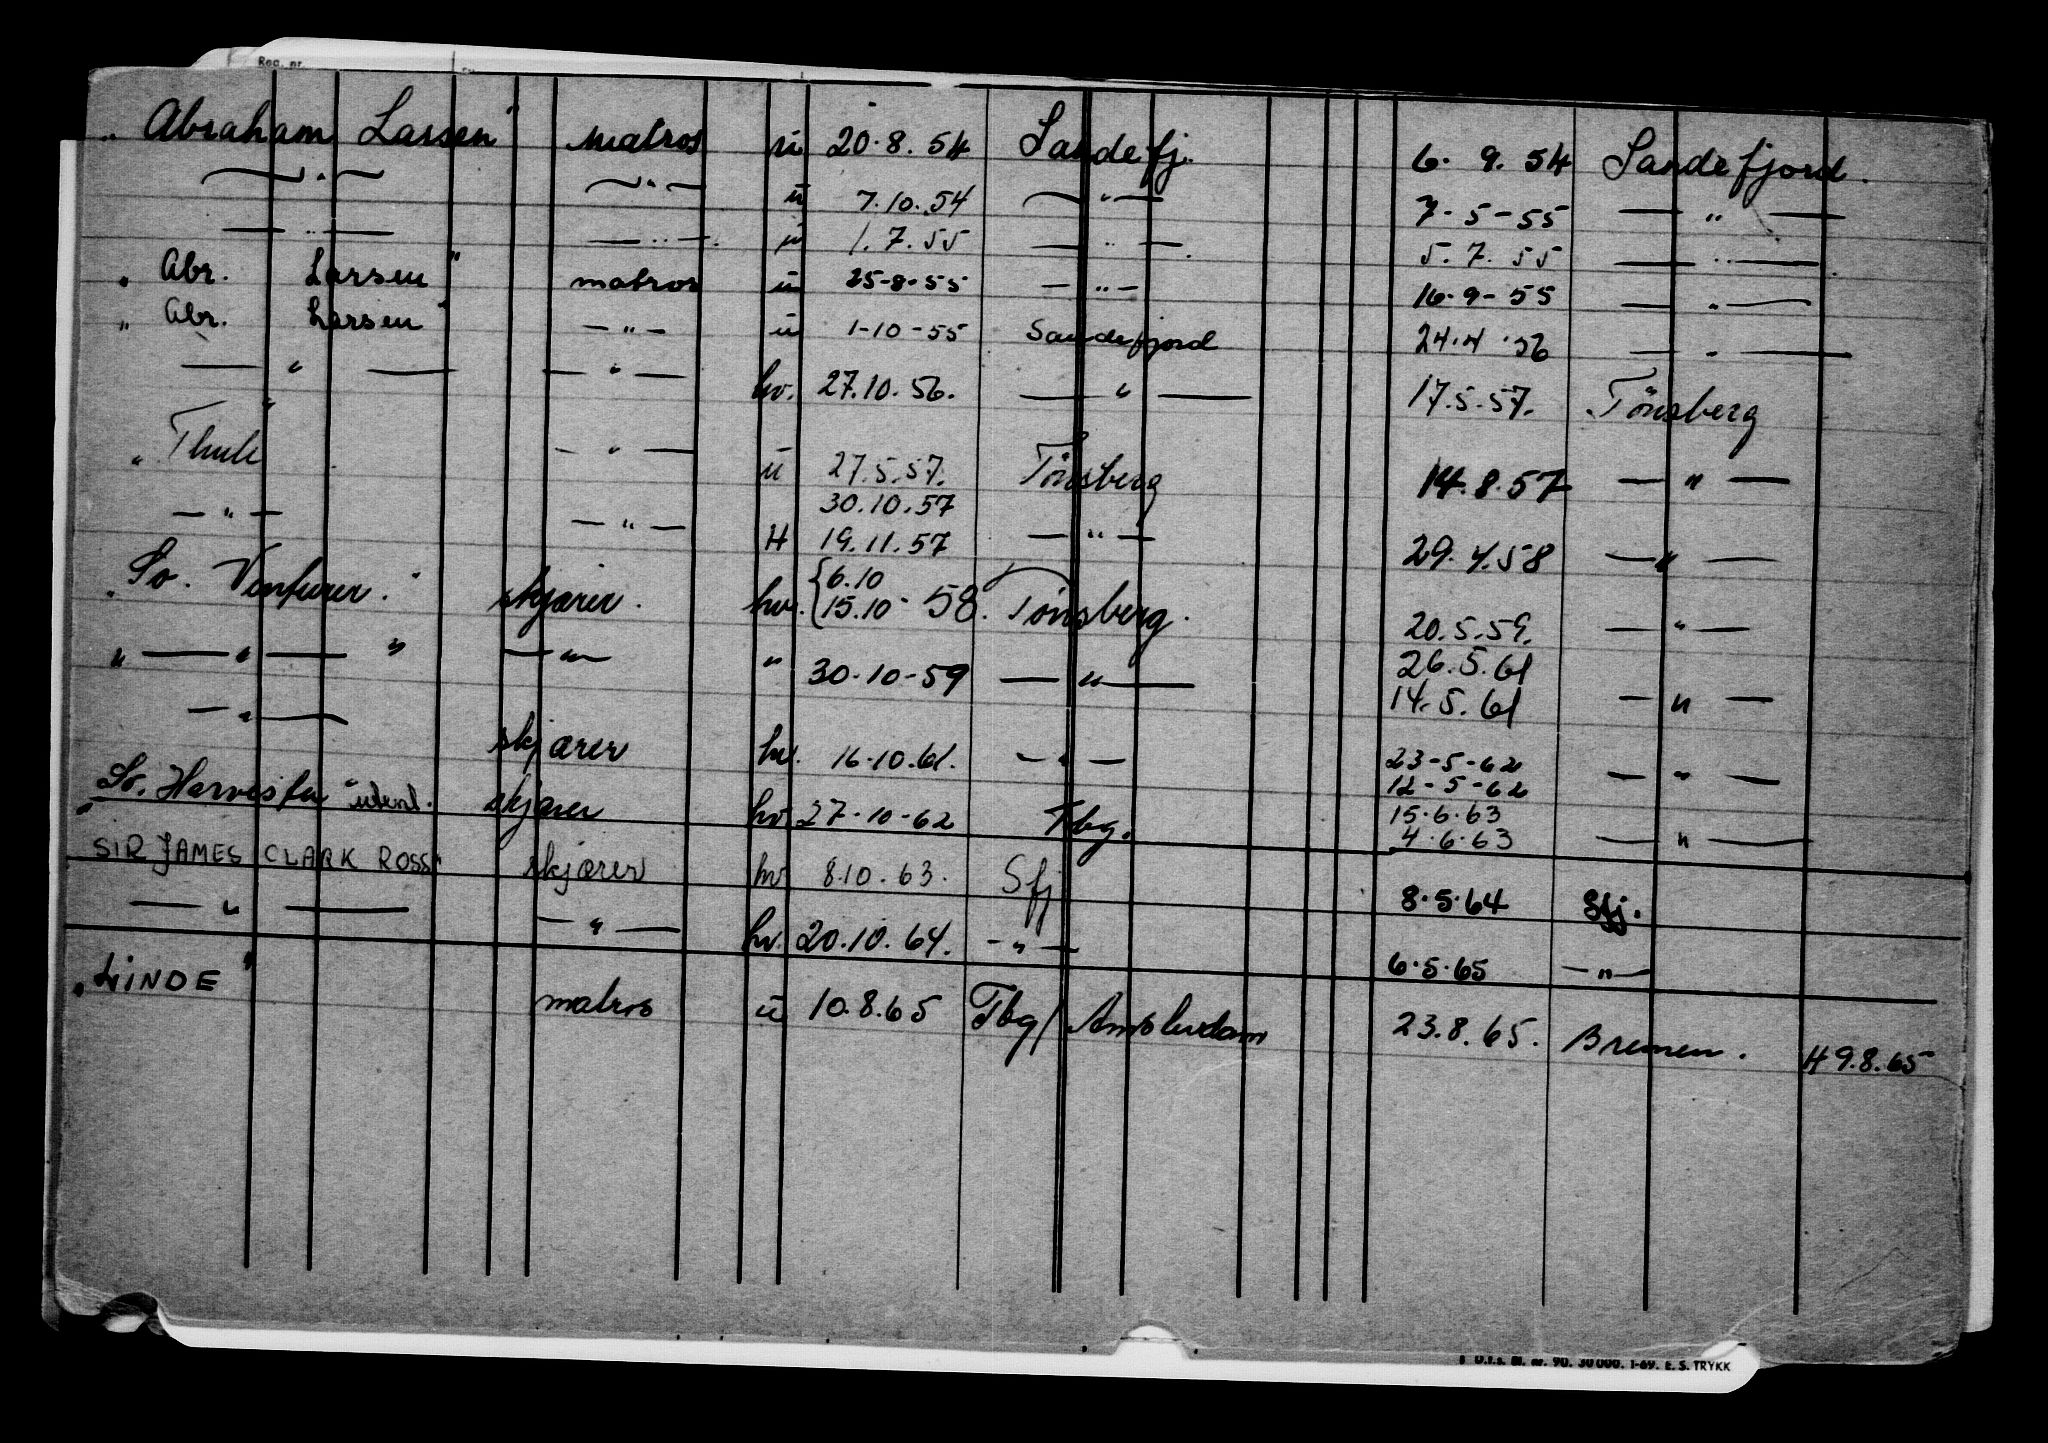 Reg. nr.
"Abraham Larsen" matros u 20.8.54 Sandefj. 6.9.54 Sandefjord.
— " — — " — u 7.10.54 — " — 7-5-55 — " —
— " — — " — u 1.7.55 — " — 5.7.55 — " —
"Abr. Larsen" matros u 25-8-55 — " — 16-9-55 — " —
"Abr. Larsen" — " — u 1-10-55 Sandefjord 24.4.56 — " —
— " — — " — hv. 27.10.56. — " — 17.5.57. Tönsberg
"Thule" — " — u 27.5.57. Tönsberg 14.8.57 — " —
30.10.57
— " — — " — H 19.11.57 — " — 29.4.58 — " —
"So. Venturer." skjærer. hv. {6.10 15.10-58. Tönsberg. 20.5.59. — " —
" — " — " — " — " 30.10-59 — " — 26.5.61
14.5.61 — " —
— " — skjærer hv. 16-10.61. — " — 23-5-62 — " —
12-5-62
"So. Harvester" utenl. skjærer hv. 27-10-62 Tbg. 15.6.63
4.6.63 — " —
SIR JAMES CLARK ROSS" skjærer hv 8.10.63. Sfj 8.5.64 Sfj.
— " — — " — hv. 20.10.64. — " — 6.5.65 — " —
"LINDE" matros u 10.8.65 Tbg/Amsterdam 23.8.65. Bremen. H 9.8.65
Bl. nr. 90. 30000. 1-69. E. S. TRYKK